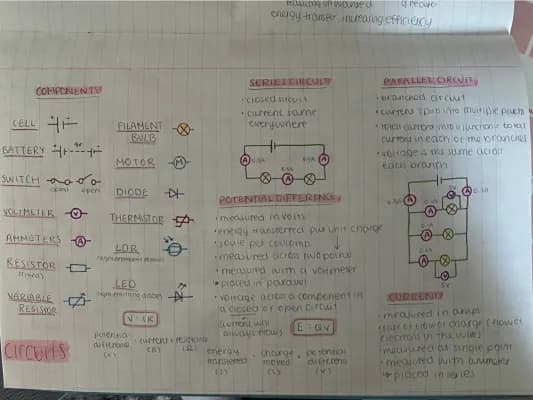 energy transfer, increasing efficiency
COMPONENTS
CELL
BATTERY
SWITCH
open
VOLTMETER
V
AMMETERS
A
RESISTOR
(fixed)
VARIABLE
RESISTOR
FILAMENT
BULB
MOTOR
M
DIODE
THERMISTOR
LDR
LED
V = IR
potential
difference = current × resistance
(V) (A) (Ω)
CIRCUITS
SERIES CIRCUIT
• closed circuit
• current same
everywhere
A
A
A
POTENTIAL DIFFERENCE
• measured in volts
• energy transferred per unit charge
• joule per coulomb
• measured across two points
• measured with a voltmeter
placed in parallel
• voltage across a component in
a closed or open circuit
(current will
always flow)
E = QV
energy
transferred = charge moved × potential difference
(J) (V)
PARALLEL CIRCUIT
• branched circuit
• current split into multiple paths
• total current into junction = total
current in each of the branches
• voltage is the same across
each branch
5V
A
A
A
A
V
5V
CURRENT
• measured in amps
• rate of flow of charge (flow of
electrons in the wires)
• measured at single point
• measured with ammeter
placed in series